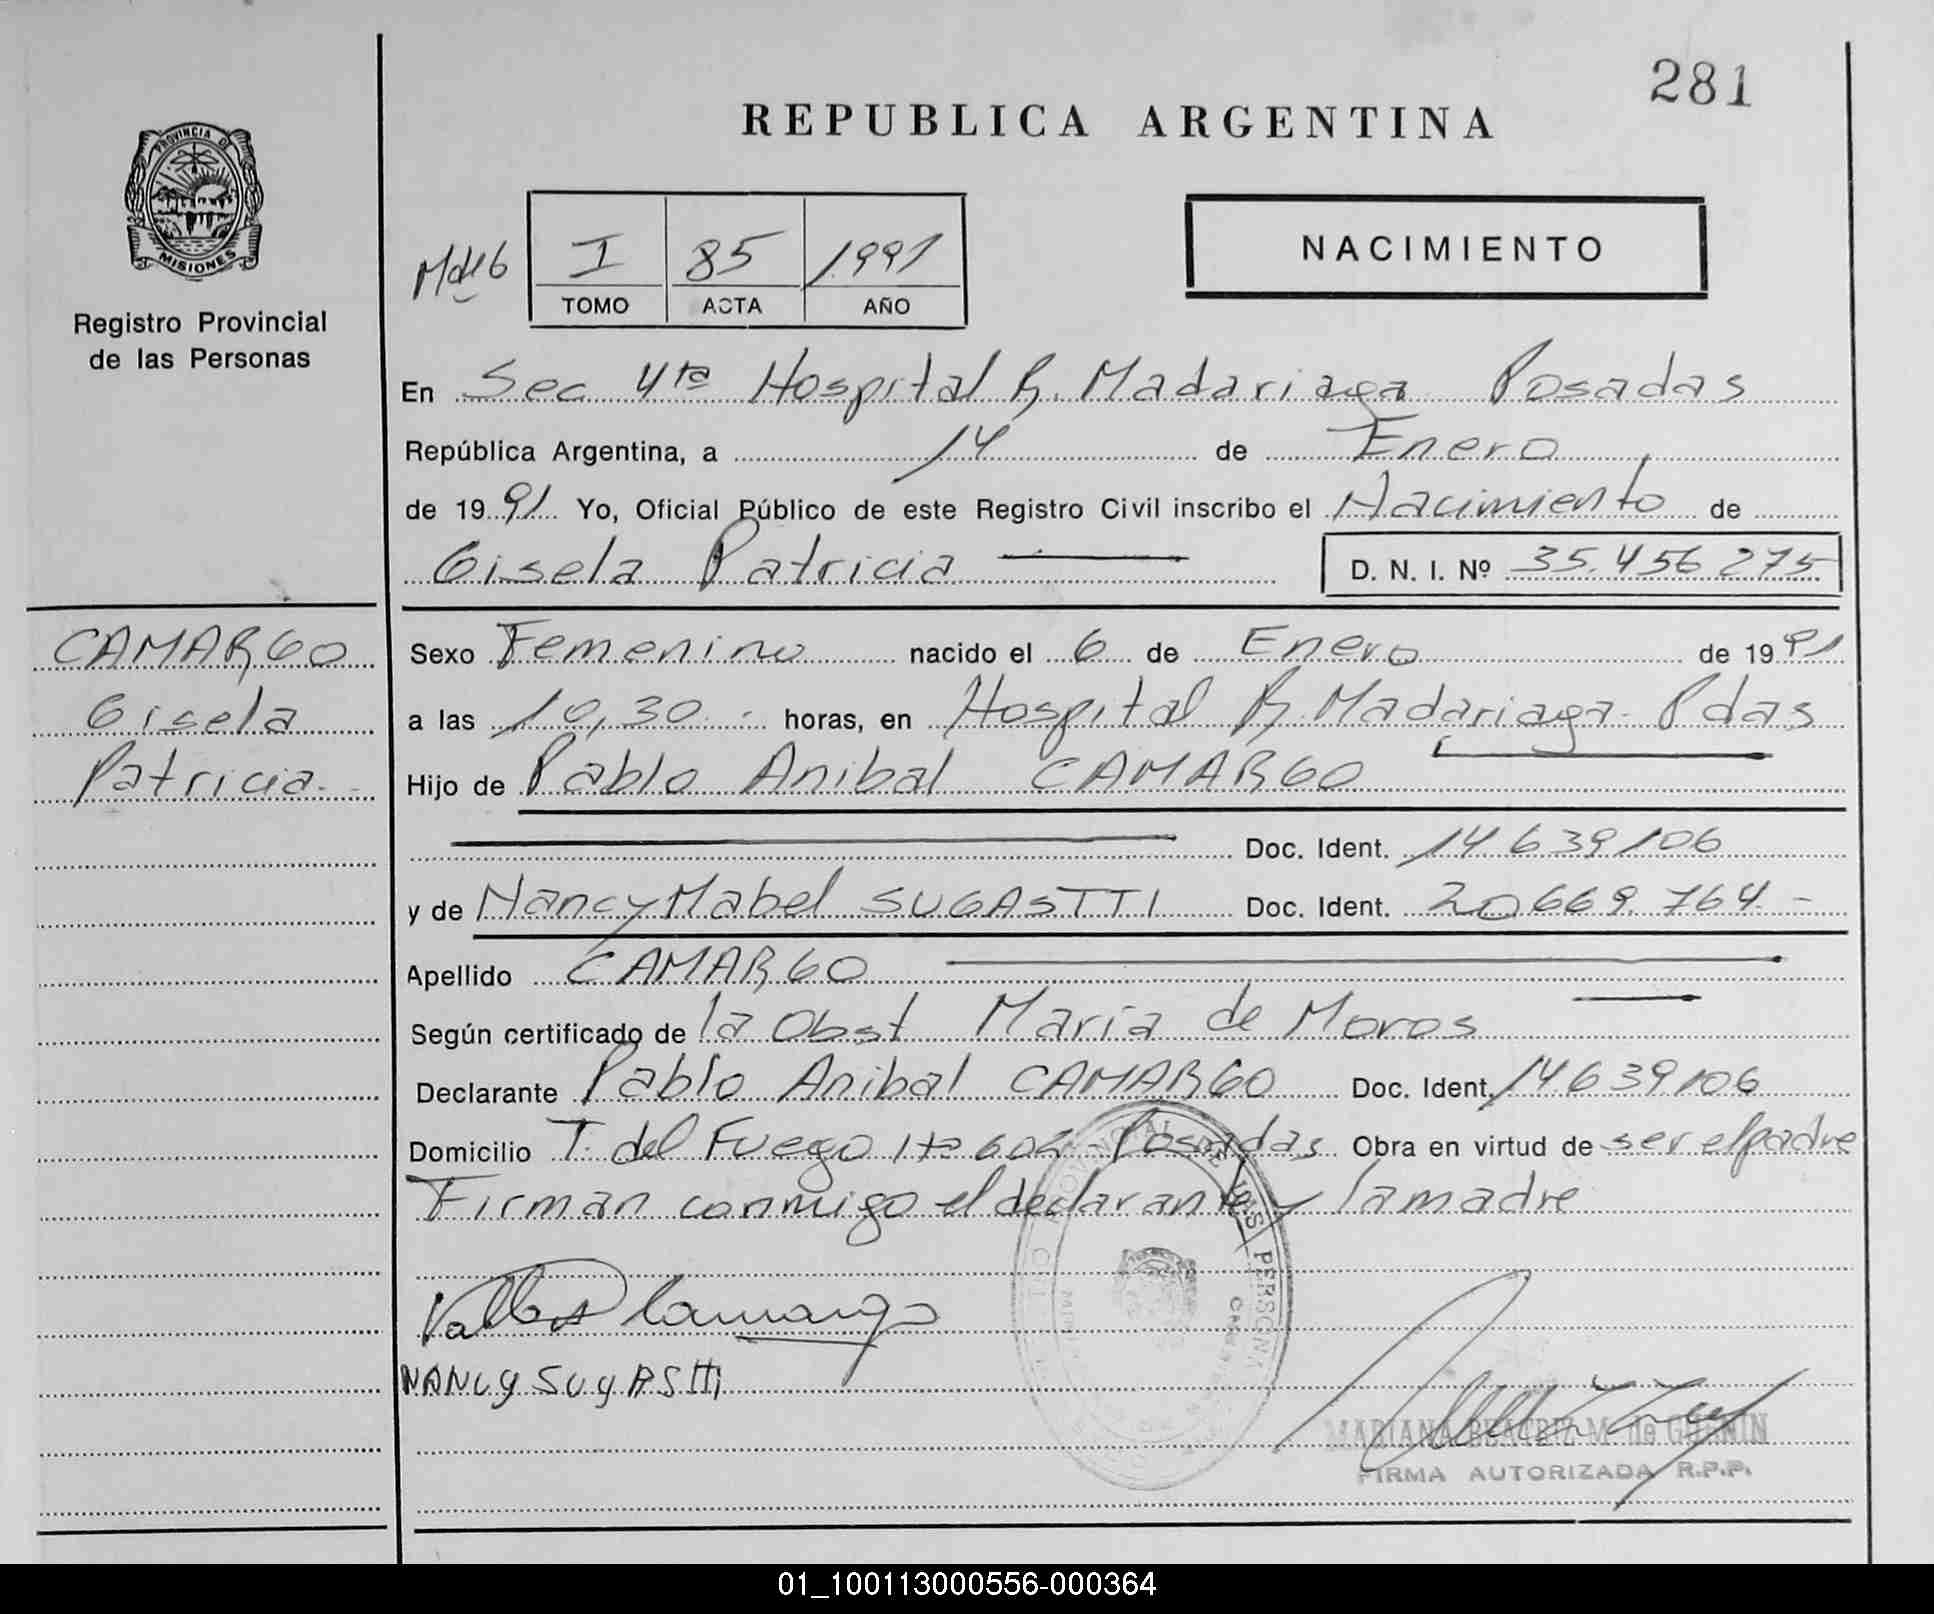 281
REPUBLICA ARGENTINA
PROVINCIA DE
MISIONES
Registro Provincial
de las Personas
I 85 1991
TOMO ACTA AÑO
NACIMIENTO
En Sec 4ta Hospital R. Madariaga Posadas
República Argentina, a 14 de Enero
de 1991 Yo, Oficial Público de este Registro Civil inscribo el Nacimiento de
Gisela Patricia D. N. I. Nº 35.456 275
CAMARGO
Gisela
Patricia.-
Sexo Femenino nacido el 6 de Enero de 1991
a las 10,30.- horas, en Hospital R. Madariaga- Pdas
Hijo de Pablo Anibal CAMARGO
Doc. Ident. 14.639106
y de Nancy Mabel SUGASTTI Doc. Ident. 20,669.764.-
Apellido CAMARGO
Según certificado de la Obst Maria de Moros
Declarante Pablo Anibal CAMARGO Doc. Ident. 14.639106
Domicilio T. del Fuego Posadas Obra en virtud de ser el padre
Firman conmigo el declarante y la madre
Camargo
NANCY SUGASTTI
MARIANA BEATRIZ M. de GUENIN
FIRMA AUTORIZADA R.P.P.
01_100113000556-000364